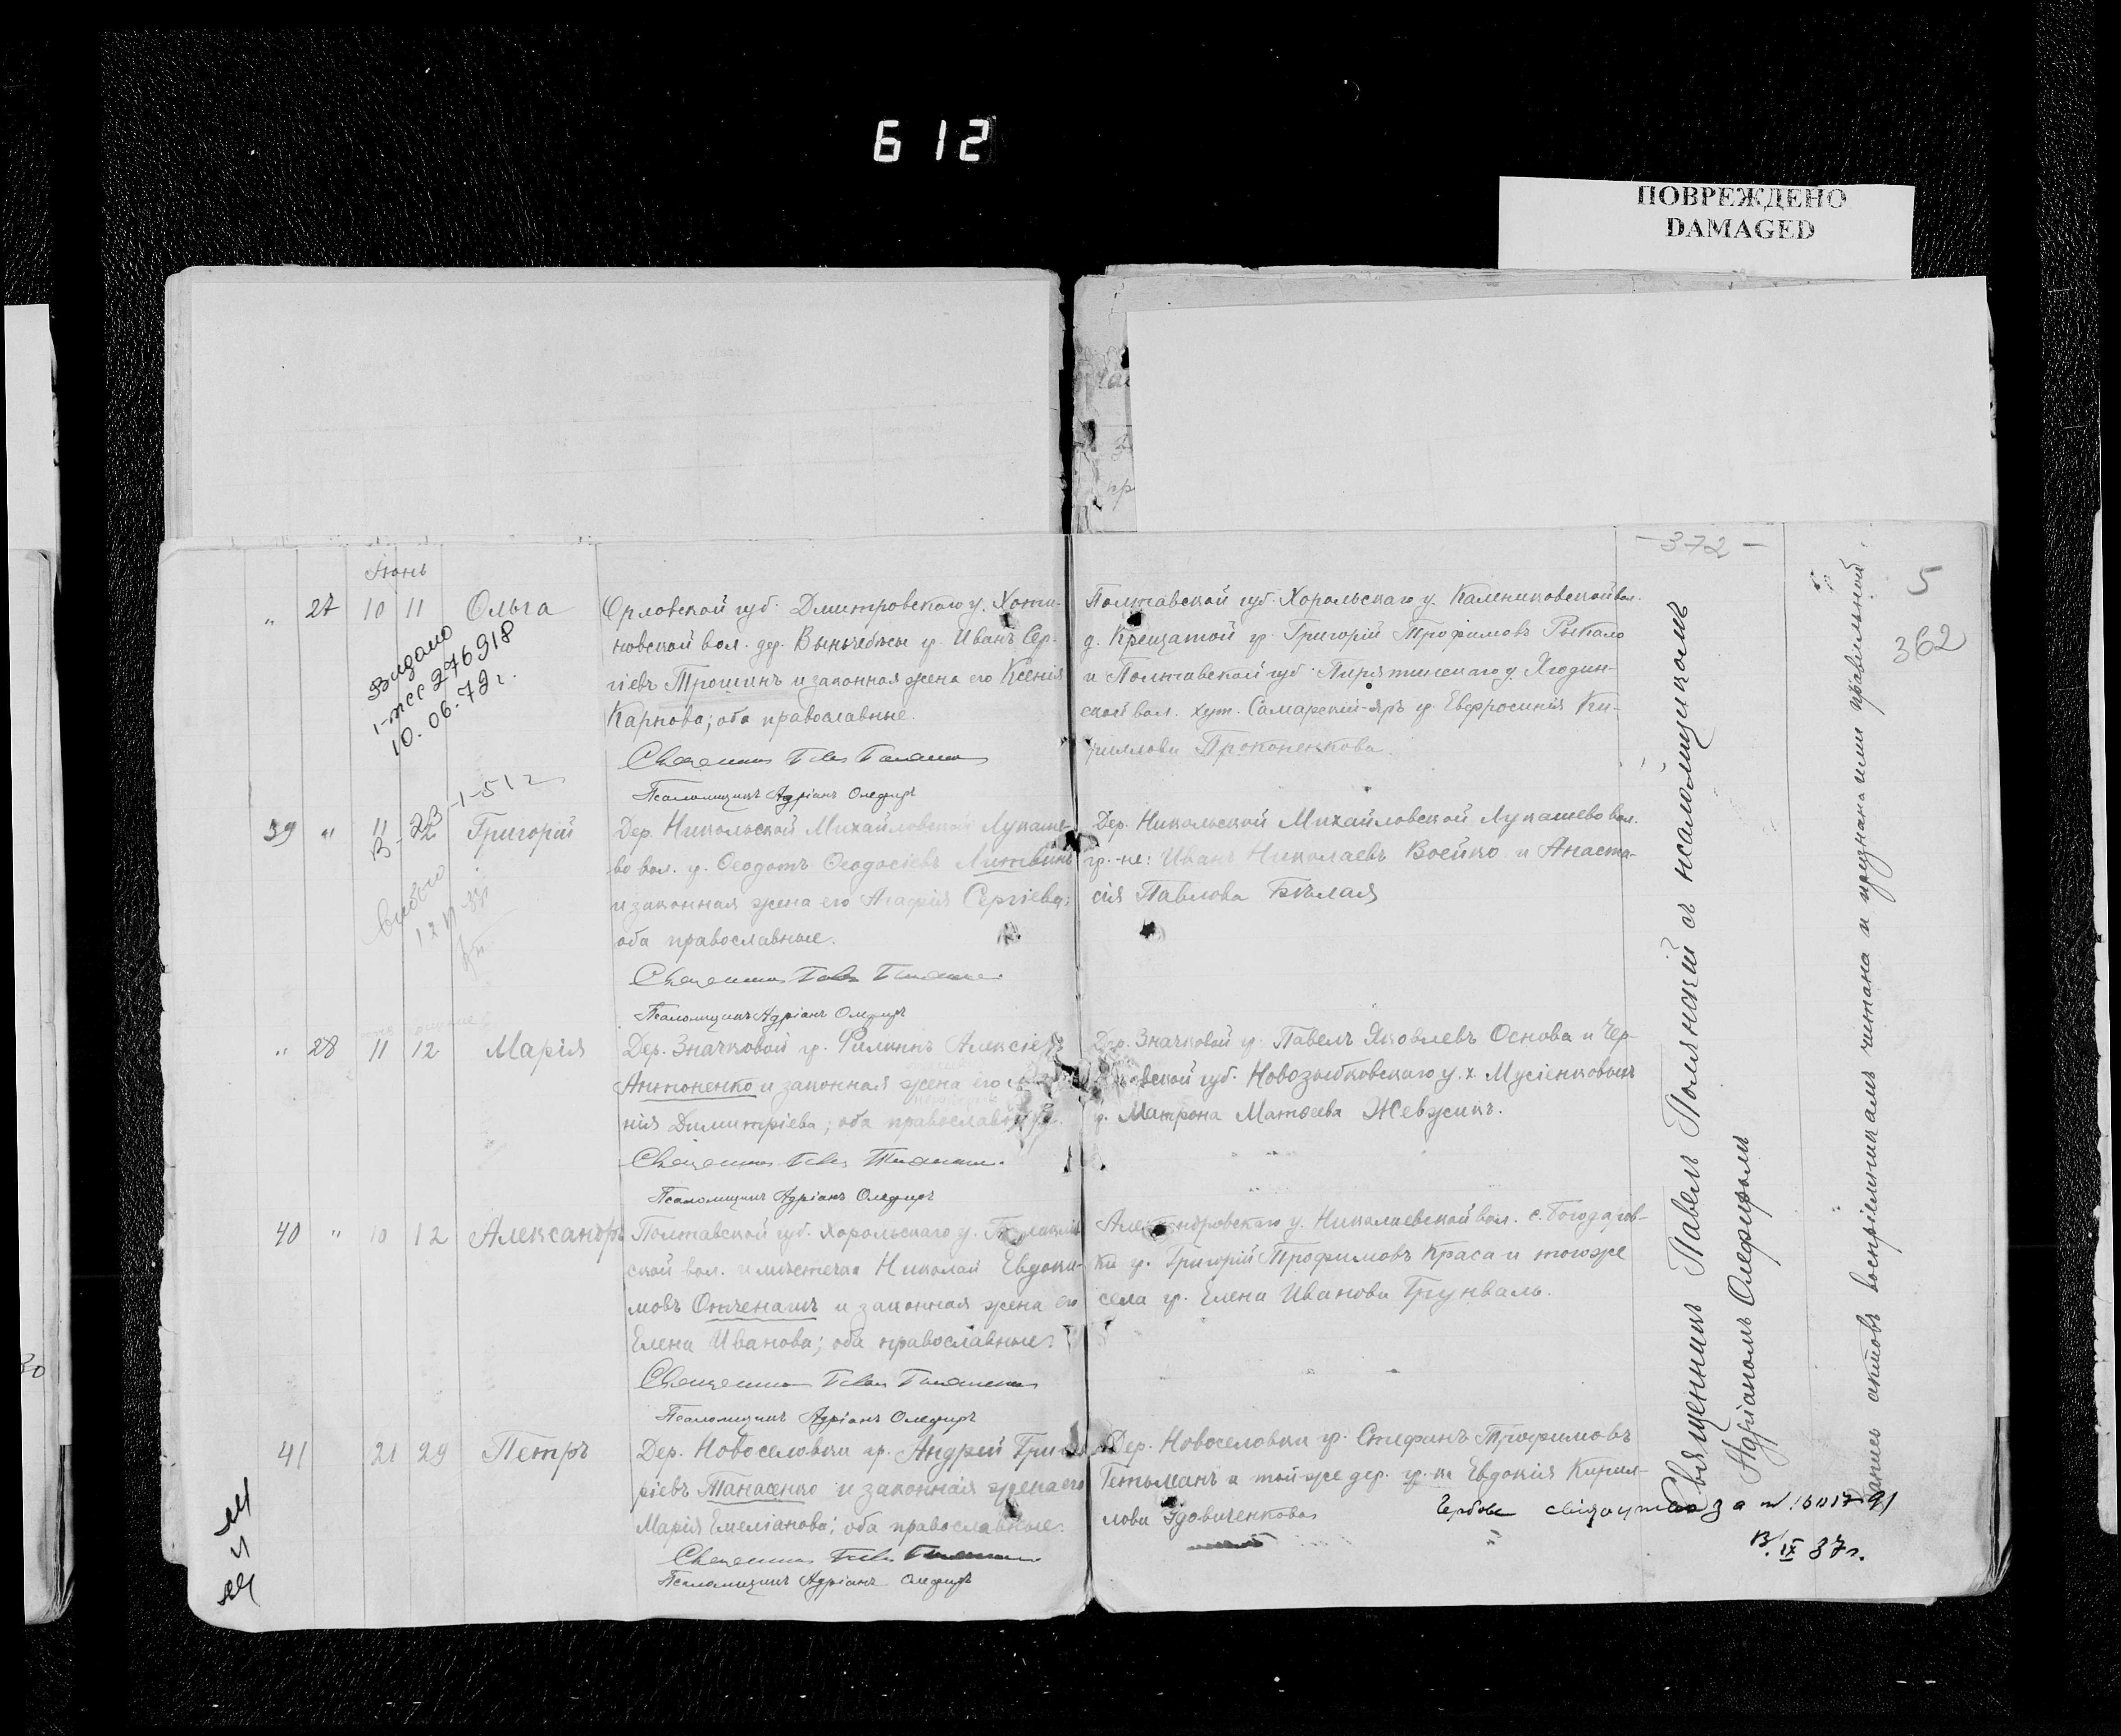 612
ПОВРЕЖДЕНО
DAMAGED
-372-
5
362
Іюнь
„ 27 10 11 Ольга
Орловской губ. Дмитровскаго у. Хоти-
новской вол. дер. гр. Иванъ Сер-
гіевъ Трошинъ и законная жена его Ксенія
Карпова; оба православные.
Священникъ
Псаломщикъ Адріанъ Олефиръ
Полтавской губ. Хорольскаго у. Калениковской вол.
д. Крещатой гр. Григорій Трофимовъ Рыкало
и Полтавской губ. Пирятинскаго у. Ягодин-
ской вол. хут. Самарскій-Яръ гр. Евфросинія Ки-
риллова Прокопенкова.
Видано
276918
10.06.72 г.
39 „ 11 22 Григорій
Дер. Никольской Михайловской Лукаше-
во вол. гр. Ѳеодотъ Ѳеодосіевъ Литвинъ
и законная жена его Агафія Сергіева;
оба православные.
Священникъ
Псаломщикъ Адріанъ Олефиръ
Дер. Никольской Михайловской Лукашево вол.
гр.-не: Иванъ Николаевъ Воейко и Анаста-
сія Павлова Бѣлая
„ 28 11 12 Марія
Дер. Значковой гр. Филиппъ Алексіевъ
Антоненко и законная жена его
нія Димитріева; оба православные.
Священникъ
Псаломщикъ Адріанъ Олефиръ
Дер. Значковой гр. Павелъ Яковлевъ Основа и Чер-
ской губ. Новозыбковскаго у. х. Мусіенковыхъ
гр. Матрона Матѳеева Жевжикъ.
40 „ 10 12 Александръ
Полтавской губ. Хорольскаго у.
ской вол. и мѣстечка Николай Евдоки-
мовъ Отченашъ и законная жена его
Елена Иванова; оба православные.
Священникъ
Псаломщикъ Адріанъ Олефиръ
Александровскаго у. Николаевской вол. с. Богодаров-
ки гр. Григорій Трофимовъ Краса и тогоже
села гр. Елена Иванова Грунваль.
41 21 29 Петръ
Дер. Новоселовки гр. Андрей Григо-
ріевъ Танасенко и законная жена его
Марія Емеліанова; оба православные.
Священникъ
Псаломщикъ Адріанъ Олефиръ
Дер. Новоселовки гр. Стефанъ Трофимовъ
Гетьманъ и той-же дер. гр-ка Евдокія Кирил-
лова Удовиченкова
IX 37 г.
Священникъ Павелъ Полянскій съ псаломщикомъ
Адріаномъ Олефиромъ
Запись актовъ воспріемникамъ читана и признана ими правильной.